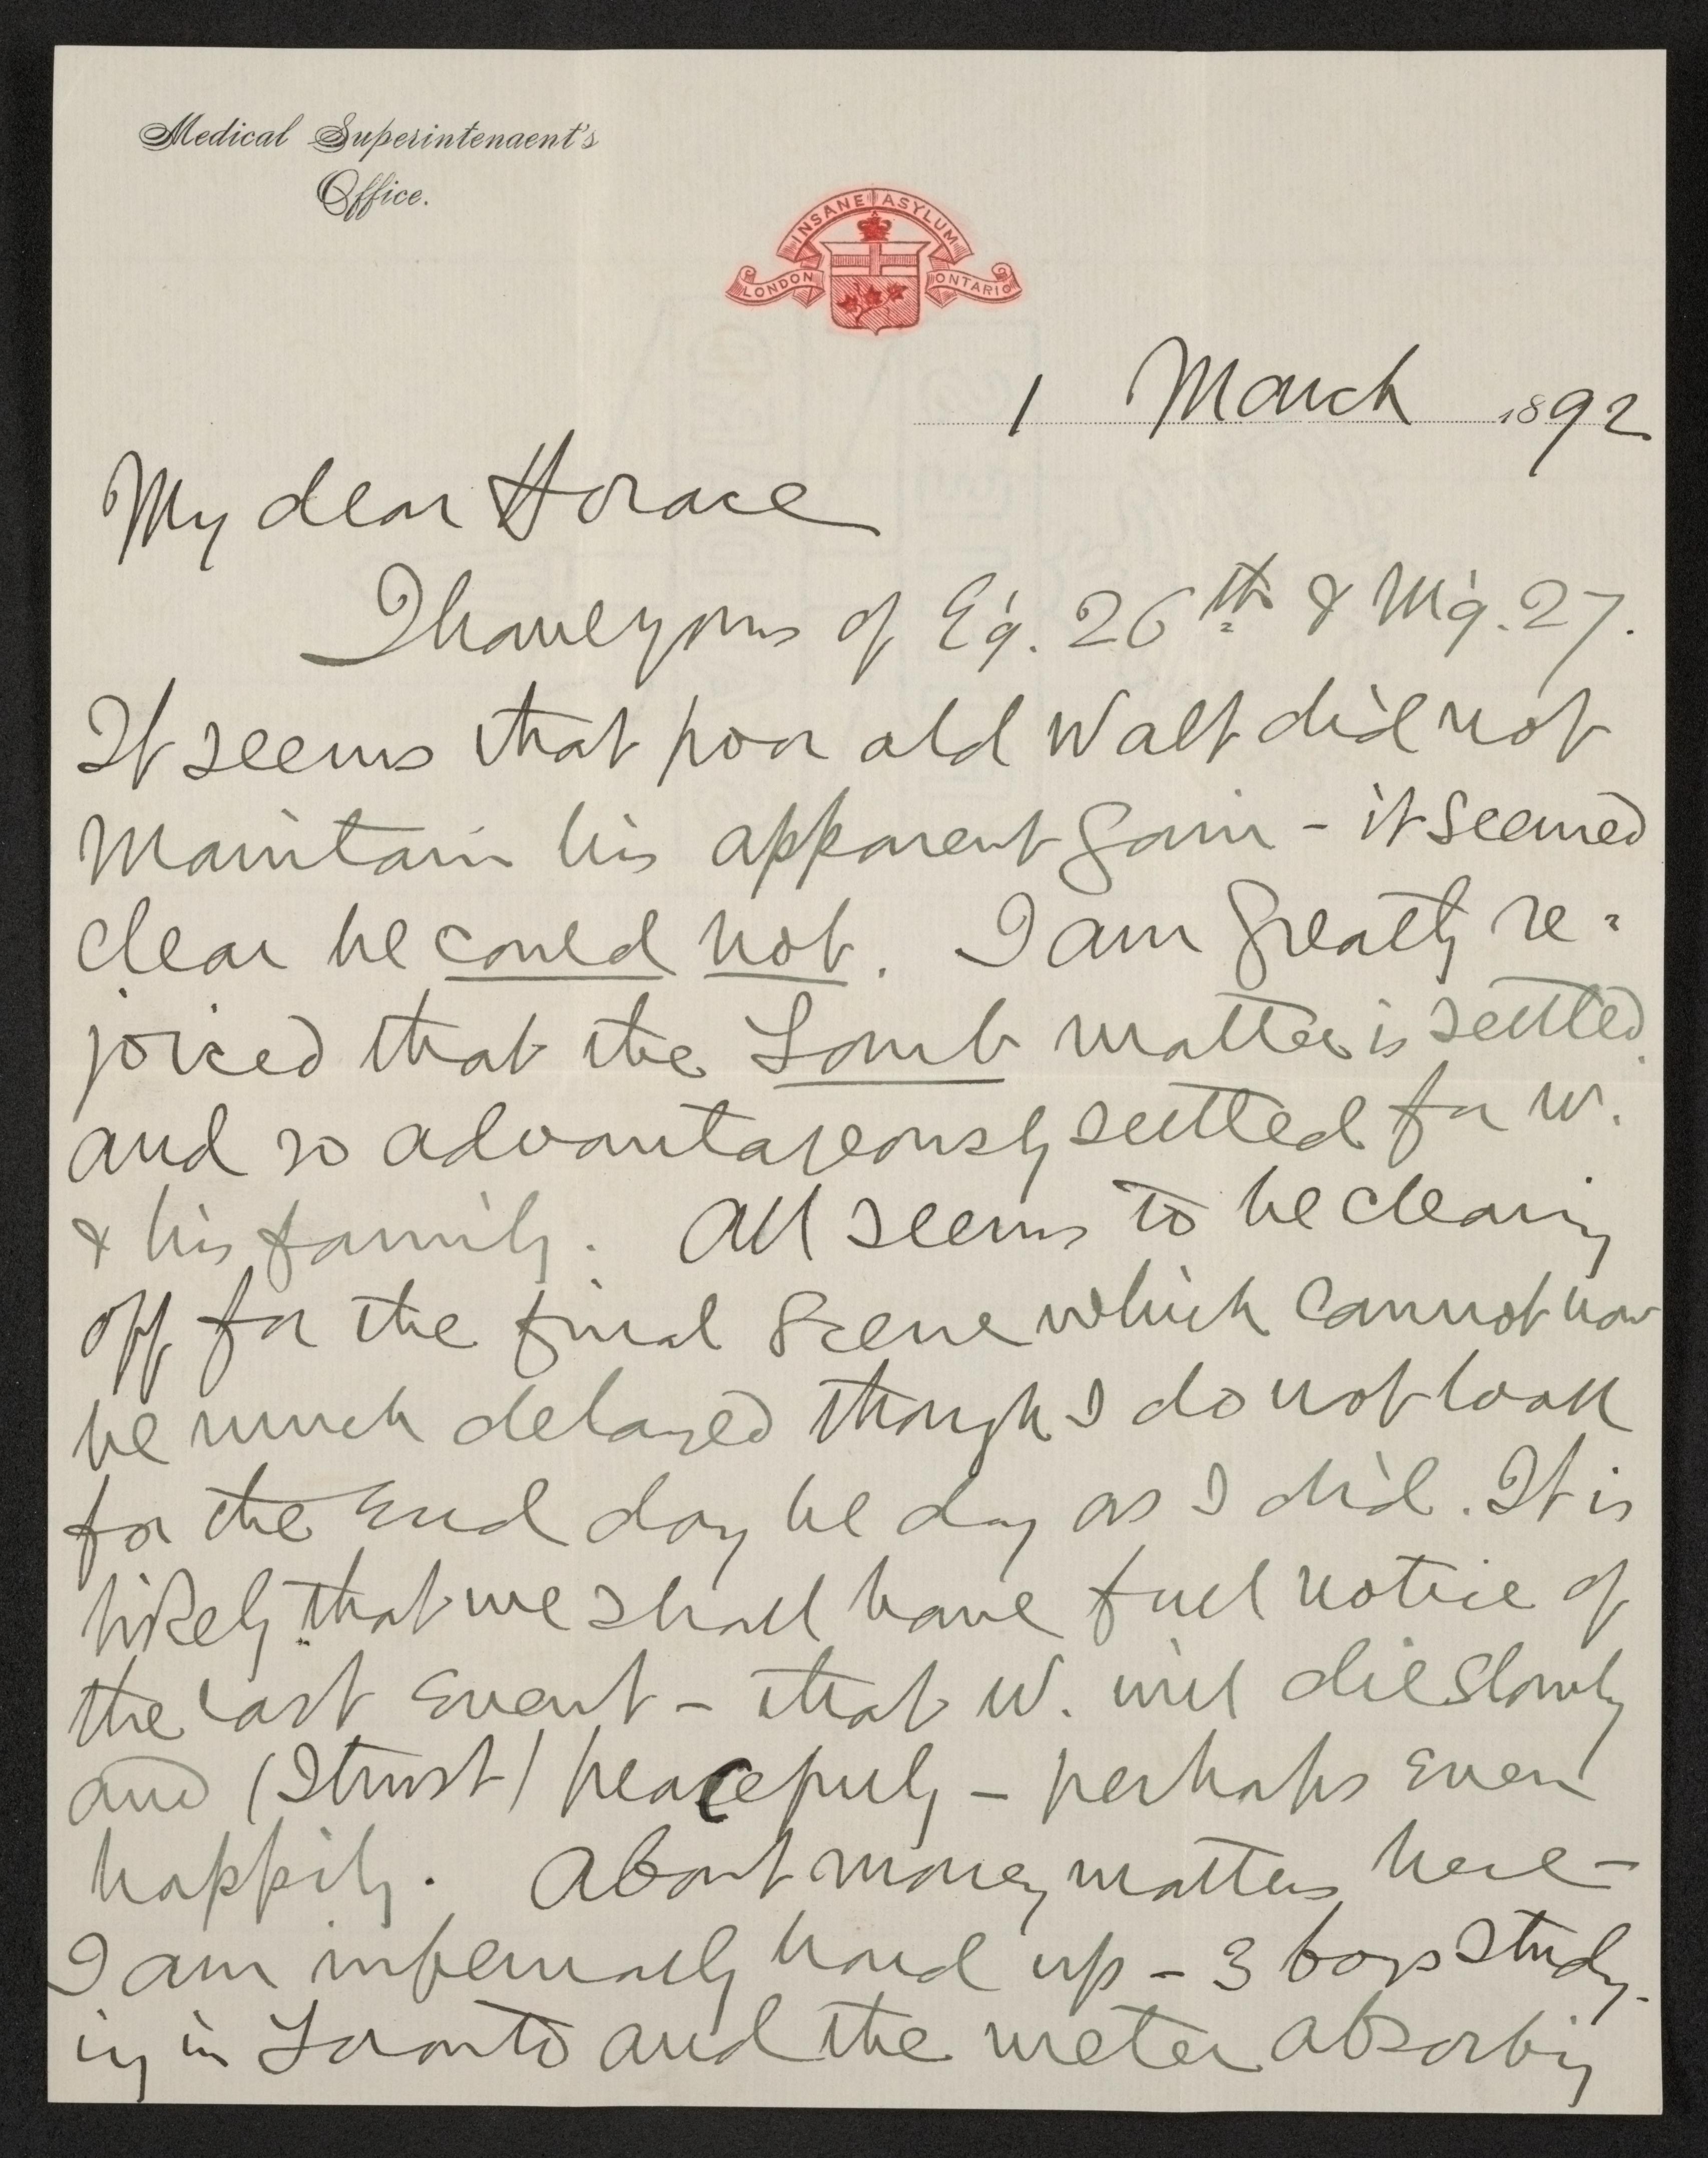 Medical Superintendent's
Office.
INSANE ASYLUM
LONDON ONTARIO
1 March 1892
My dear Horace
I have yours of E'g. 26th & M'g. 27.
It seems that poor old Walt did not
maintain his apparent gain - it seemed
clear he could not. I am greatly re-
joiced that the Tomb matter is settled
and so advantageously settled for W.
& his family. All seems to be clearing
off for the final scene which cannot now
be much delayed though I do not look
for the end day be day as I did. It is
likely that we shall have full notice of
the last event - that W. will die slowly
and (I trust) peacefully - perhaps even
happily. About money matters here -
I am infernally hard up - 3 boys study-
ing in Toronto and the meter absorbing